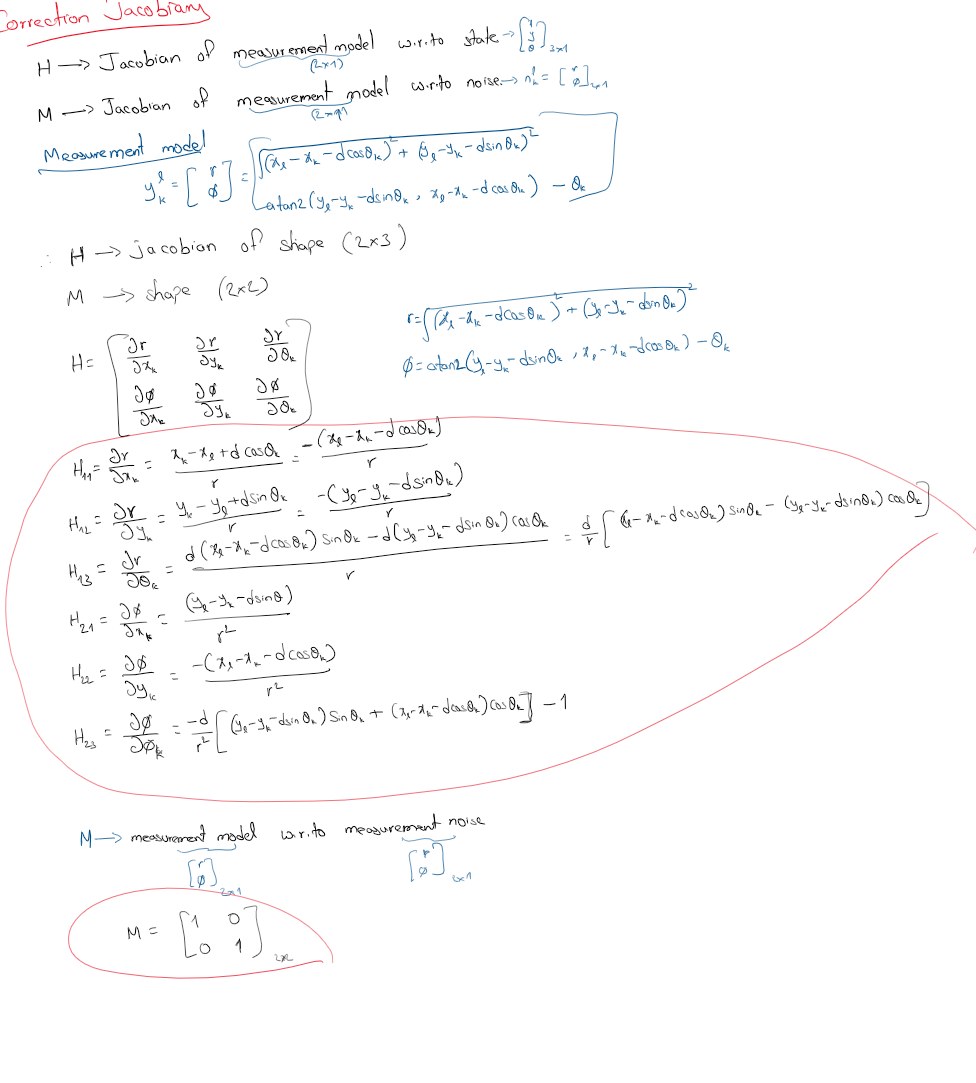 Correction Jacobians
H → Jacobian of measurement model w.r.to state → [x y θ]3x1
(2x1)
M → Jacobian of measurement model w.r.to noise → nₖˡ = [r ϕ]2x1
(2x1)
Measurement model
yₖˡ = [r ϕ] = [√((xₗ-xₖ-dcosθₖ)² + (yₗ-yₖ-dsinθₖ)²)
atan2(yₗ-yₖ-dsinθₖ, xₗ-xₖ-dcosθₖ) - θₖ]
∴ H → jacobian of shape (2x3)
M → shape (2x2)
r = √((xₗ-xₖ-dcosθₖ)² + (yₗ-yₖ-dsinθₖ)²)
ϕ = atan2(yₗ-yₖ-dsinθₖ, xₗ-xₖ-dcosθₖ) - θₖ
H = [∂r/∂xₖ ∂r/∂yₖ ∂r/∂θₖ
∂ϕ/∂xₖ ∂ϕ/∂yₖ ∂ϕ/∂θₖ]
H₁₁ = ∂r/∂xₖ = (xₖ-xₗ+dcosθₖ)/r = -(xₗ-xₖ-dcosθₖ)/r
H₁₂ = ∂r/∂yₖ = (yₖ-yₗ+dsinθₖ)/r = -(yₗ-yₖ-dsinθₖ)/r
H₁₃ = ∂r/∂θₖ = (d(xₗ-xₖ-dcosθₖ)sinθₖ - d(yₗ-yₖ-dsinθₖ)cosθₖ)/r = d/r[(xₗ-xₖ-dcosθₖ)sinθₖ - (yₗ-yₖ-dsinθₖ)cosθₖ]
H₂₁ = ∂ϕ/∂xₖ = (yₗ-yₖ-dsinθ)/r²
H₂₂ = ∂ϕ/∂yₖ = -(xₗ-xₖ-dcosθₖ)/r²
H₂₃ = ∂ϕ/∂ϕₖ = -d/r²[(yₗ-yₖ-dsinθₖ)sinθₖ + (xₗ-xₖ-dcosθₖ)cosθₖ] - 1
M → measurement model w.r.to measurement noise
[r ϕ]2x1 [r ϕ]2x1
M = [1 0
0 1]2x2